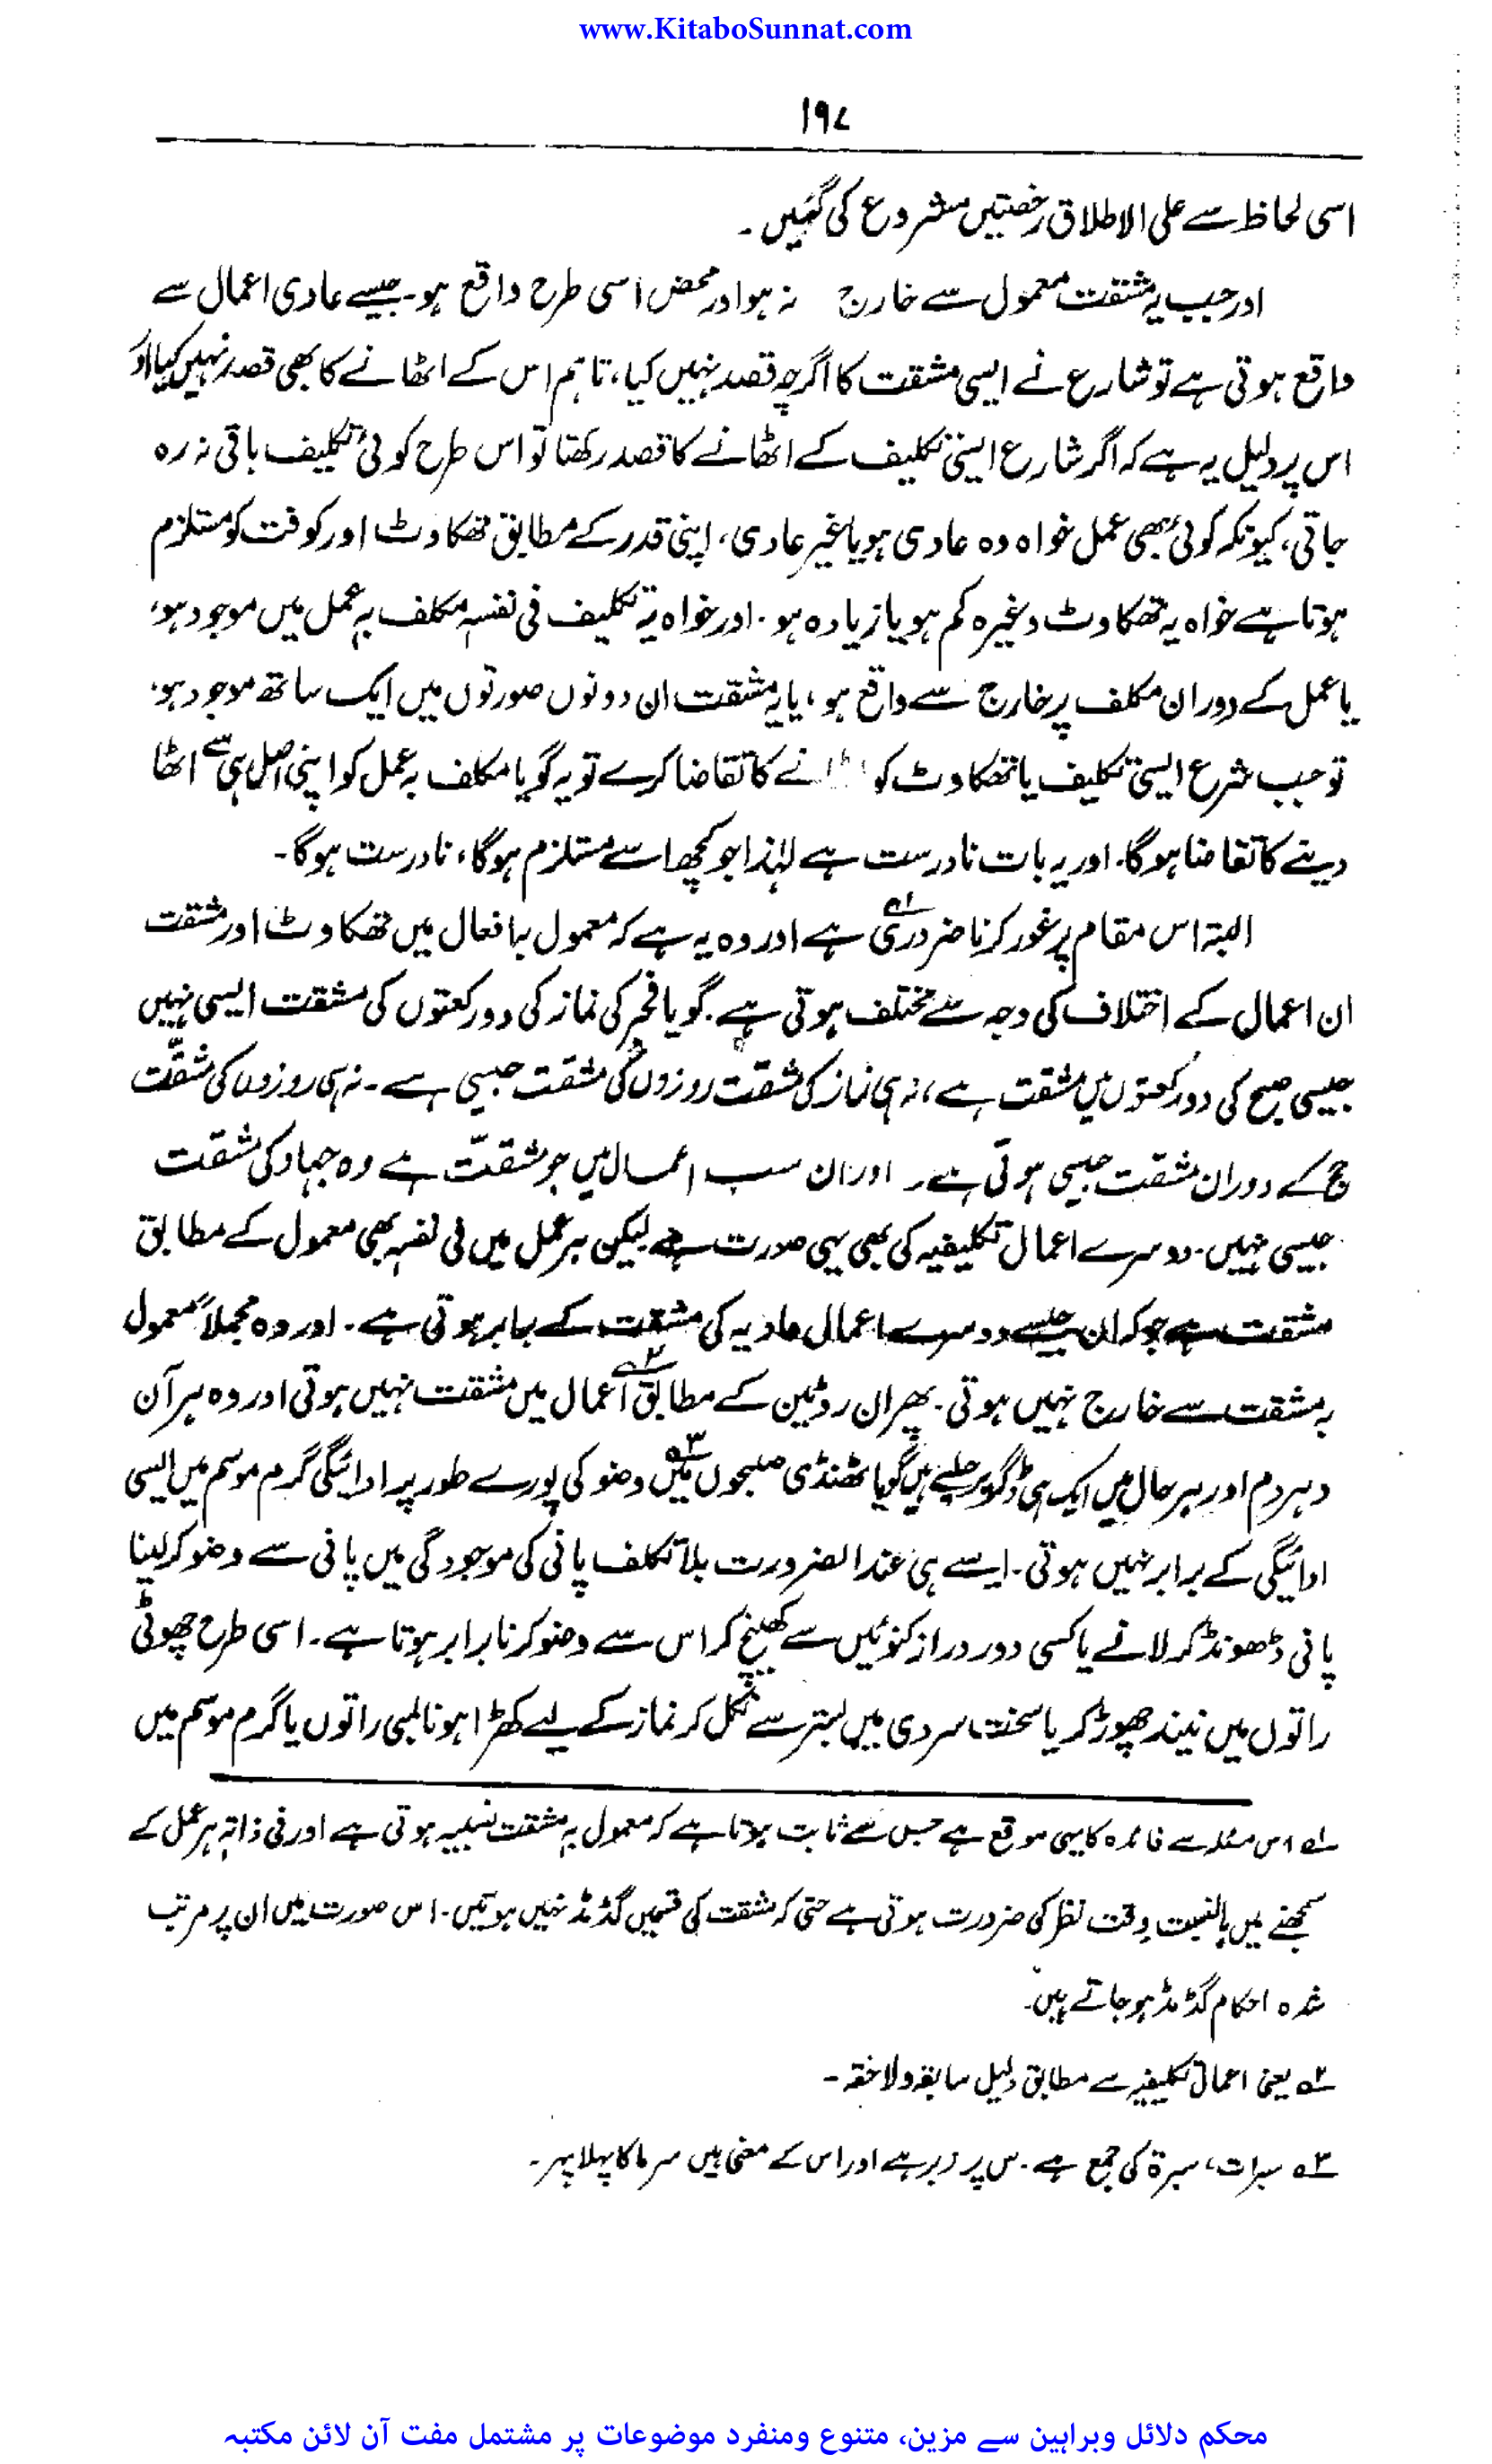 www.KitaboSunnat.com
۱۹۷
اسی لحاظ سے علی الاطلاق رخصتیں مشروع کی گئیں۔
اور جب یہ مشقت معمول سے خارج نہ ہو اور محض اسی طرح واقع ہو۔ جیسے عادی اعمال سے
واقع ہوتی ہے تو شارع نے ایسی مشقت کا اگرچہ قصد نہیں کیا، تاہم اس کے اٹھانے کا بھی قصد نہیں کیا اور
اس پر دلیل یہ ہے کہ اگر شارع ایسی تکلیف کے اٹھانے کا قصد رکھتا تو اس طرح کوئی تکلیف باقی نہ رہ
جاتی، کیونکہ کوئی بھی عمل خواہ وہ عادی ہو یا غیر عادی، اپنی قدر کے مطابق تھکاوٹ اور کوفت کو مستلزم
ہوتا ہے خواہ یہ تھکاوٹ وغیرہ کم ہو یا زیادہ ہو۔ اور خواہ یہ تکلیف فی نفسہٖ مکلف بہ عمل میں موجود ہو،
یا عمل کے دوران مکلف پر خارج سے واقع ہو، یا یہ مشقت ان دونوں صورتوں میں ایک ساتھ موجود ہو،
تو جب شرع ایسی تکلیف یا تھکاوٹ کو نے کا تقاضا کرے تو یہ گویا مکلف بہ عمل کو اپنی اصل ہی سے اٹھا
دینے کا تقاضا ہوگا۔ اور یہ بات نادرست ہے لہٰذا جو کچھ اسے مستلزم ہوگا، نادرست ہوگا۔
البتہ اس مقام پر غور کرنا ضروری ہے۱ اور وہ یہ ہے کہ معمول بہا افعال میں تھکاوٹ اور مشقت
ان اعمال کے اختلاف کی وجہ سے مختلف ہوتی ہے۔ گویا فجر کی نماز کی دو رکعتوں کی مشقت ایسی نہیں
جیسی صبح کی دو رکعتوں میں مشقت ہے، نہ ہی نماز کی مشقت روزوں کی مشقت جیسی ہے۔ نہ ہی روزوں کی مشقت
حج کے دوران مشقت جیسی ہوتی ہے۔ اور ان سب اعمال میں جو مشقت ہے وہ جہاد کی مشقت
جیسی نہیں۔ دوسرے اعمال تکلیفیہ کی بھی یہی صورت ہے لیکن ہر عمل میں فی نفسہٖ بھی معمول کے مطابق
مشقت ہے جو کہ ان جیسے دوسرے اعمال عادیہ کی مشقت کے برابر ہوتی ہے۔ اور وہ مجملاً معمول
بہ مشقت سے خارج نہیں ہوتی۔ پھر ان روٹین کے مطابق۲ اعمال میں مشقت نہیں ہوتی اور وہ ہر آن
و ہر دم اور ہر حال میں ایک ہی ڈگر پر چلتے ہیں گویا ٹھنڈی صبحوں میں۳ وضو کی پورے طور پر ادائیگی گرم موسم میں ایسی
ادائیگی کے برابر نہیں ہوتی۔ ایسے ہی عند الضرورت بلا تکلف پانی کی موجودگی میں پانی سے وضو کر لینا
پانی ڈھونڈ کر لانے یا کسی دور دراز کنوئیں سے کھینچ کر اس سے وضو کرنا برابر ہوتا ہے۔ اسی طرح چھوٹی
راتوں میں نیند چھوڑ کر یا سخت سردی میں بستر سے نکل کر نماز کے لیے کھڑا ہونا لمبی راتوں یا گرم موسم میں
۱؎ اس مسئلہ سے فائدہ کا یہی موقع ہے جس سے ثابت ہوتا ہے کہ معمول بہ مشقت نسبیہ ہوتی ہے اور فی ذاتہٖ ہر عمل کے
سمجھنے میں بالنسبت دقت نظر کی ضرورت ہوتی ہے حتیٰ کہ مشقت کی قسمیں گڈمڈ نہیں ہوتیں۔ اس صورت میں ان پر مرتب
شدہ احکام گڈمڈ ہو جاتے ہیں۔
۲؎ یعنی اعمال تکلیفیہ سے مطابق دلیل سابقہ ولاحقہ۔
۳؎ سبرات، سبرۃ کی جمع ہے۔ س پر زبر ہے اور اس کے معنی ہیں سرما کا پہلا پہر۔
محکم دلائل وبراہین سے مزین، متنوع ومنفرد موضوعات پر مشتمل مفت آن لائن مکتبہ